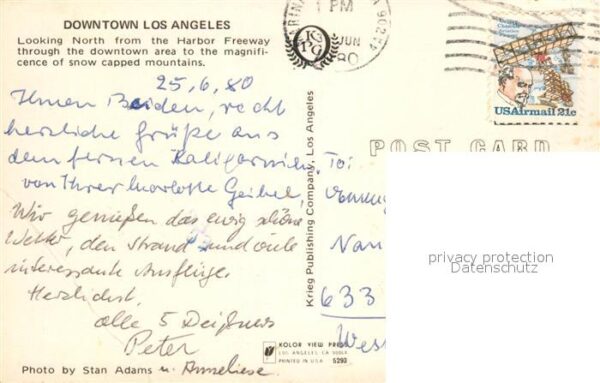 DOWNTOWN LOS ANGELES
Looking North from the Harbor Freeway
through the downtown area to the magnifi-
cence of snow capped mountains.
25.6.80
Ihnen Beiden, recht
herzliche Grüße aus
dem fernen Kalifornien.
von Ihrer Charlotte Geibel,
Wir genießen das ewig schöne
Wetter, den Strand und viele
interessante Ausflüge.
Herzlichst,
alle 5 Deißners
Peter
u. Anneliese
Photo by Stan Adams
Krieg Publishing Company, Los Angeles
KOLOR VIEW PRESS
LOS ANGELES, CA
PRINTED IN USA 5293
1 PM
JUN
80
KPG
USAirmail 21c
POST CARD
To:
633
West
privacy protection
Datenschutz